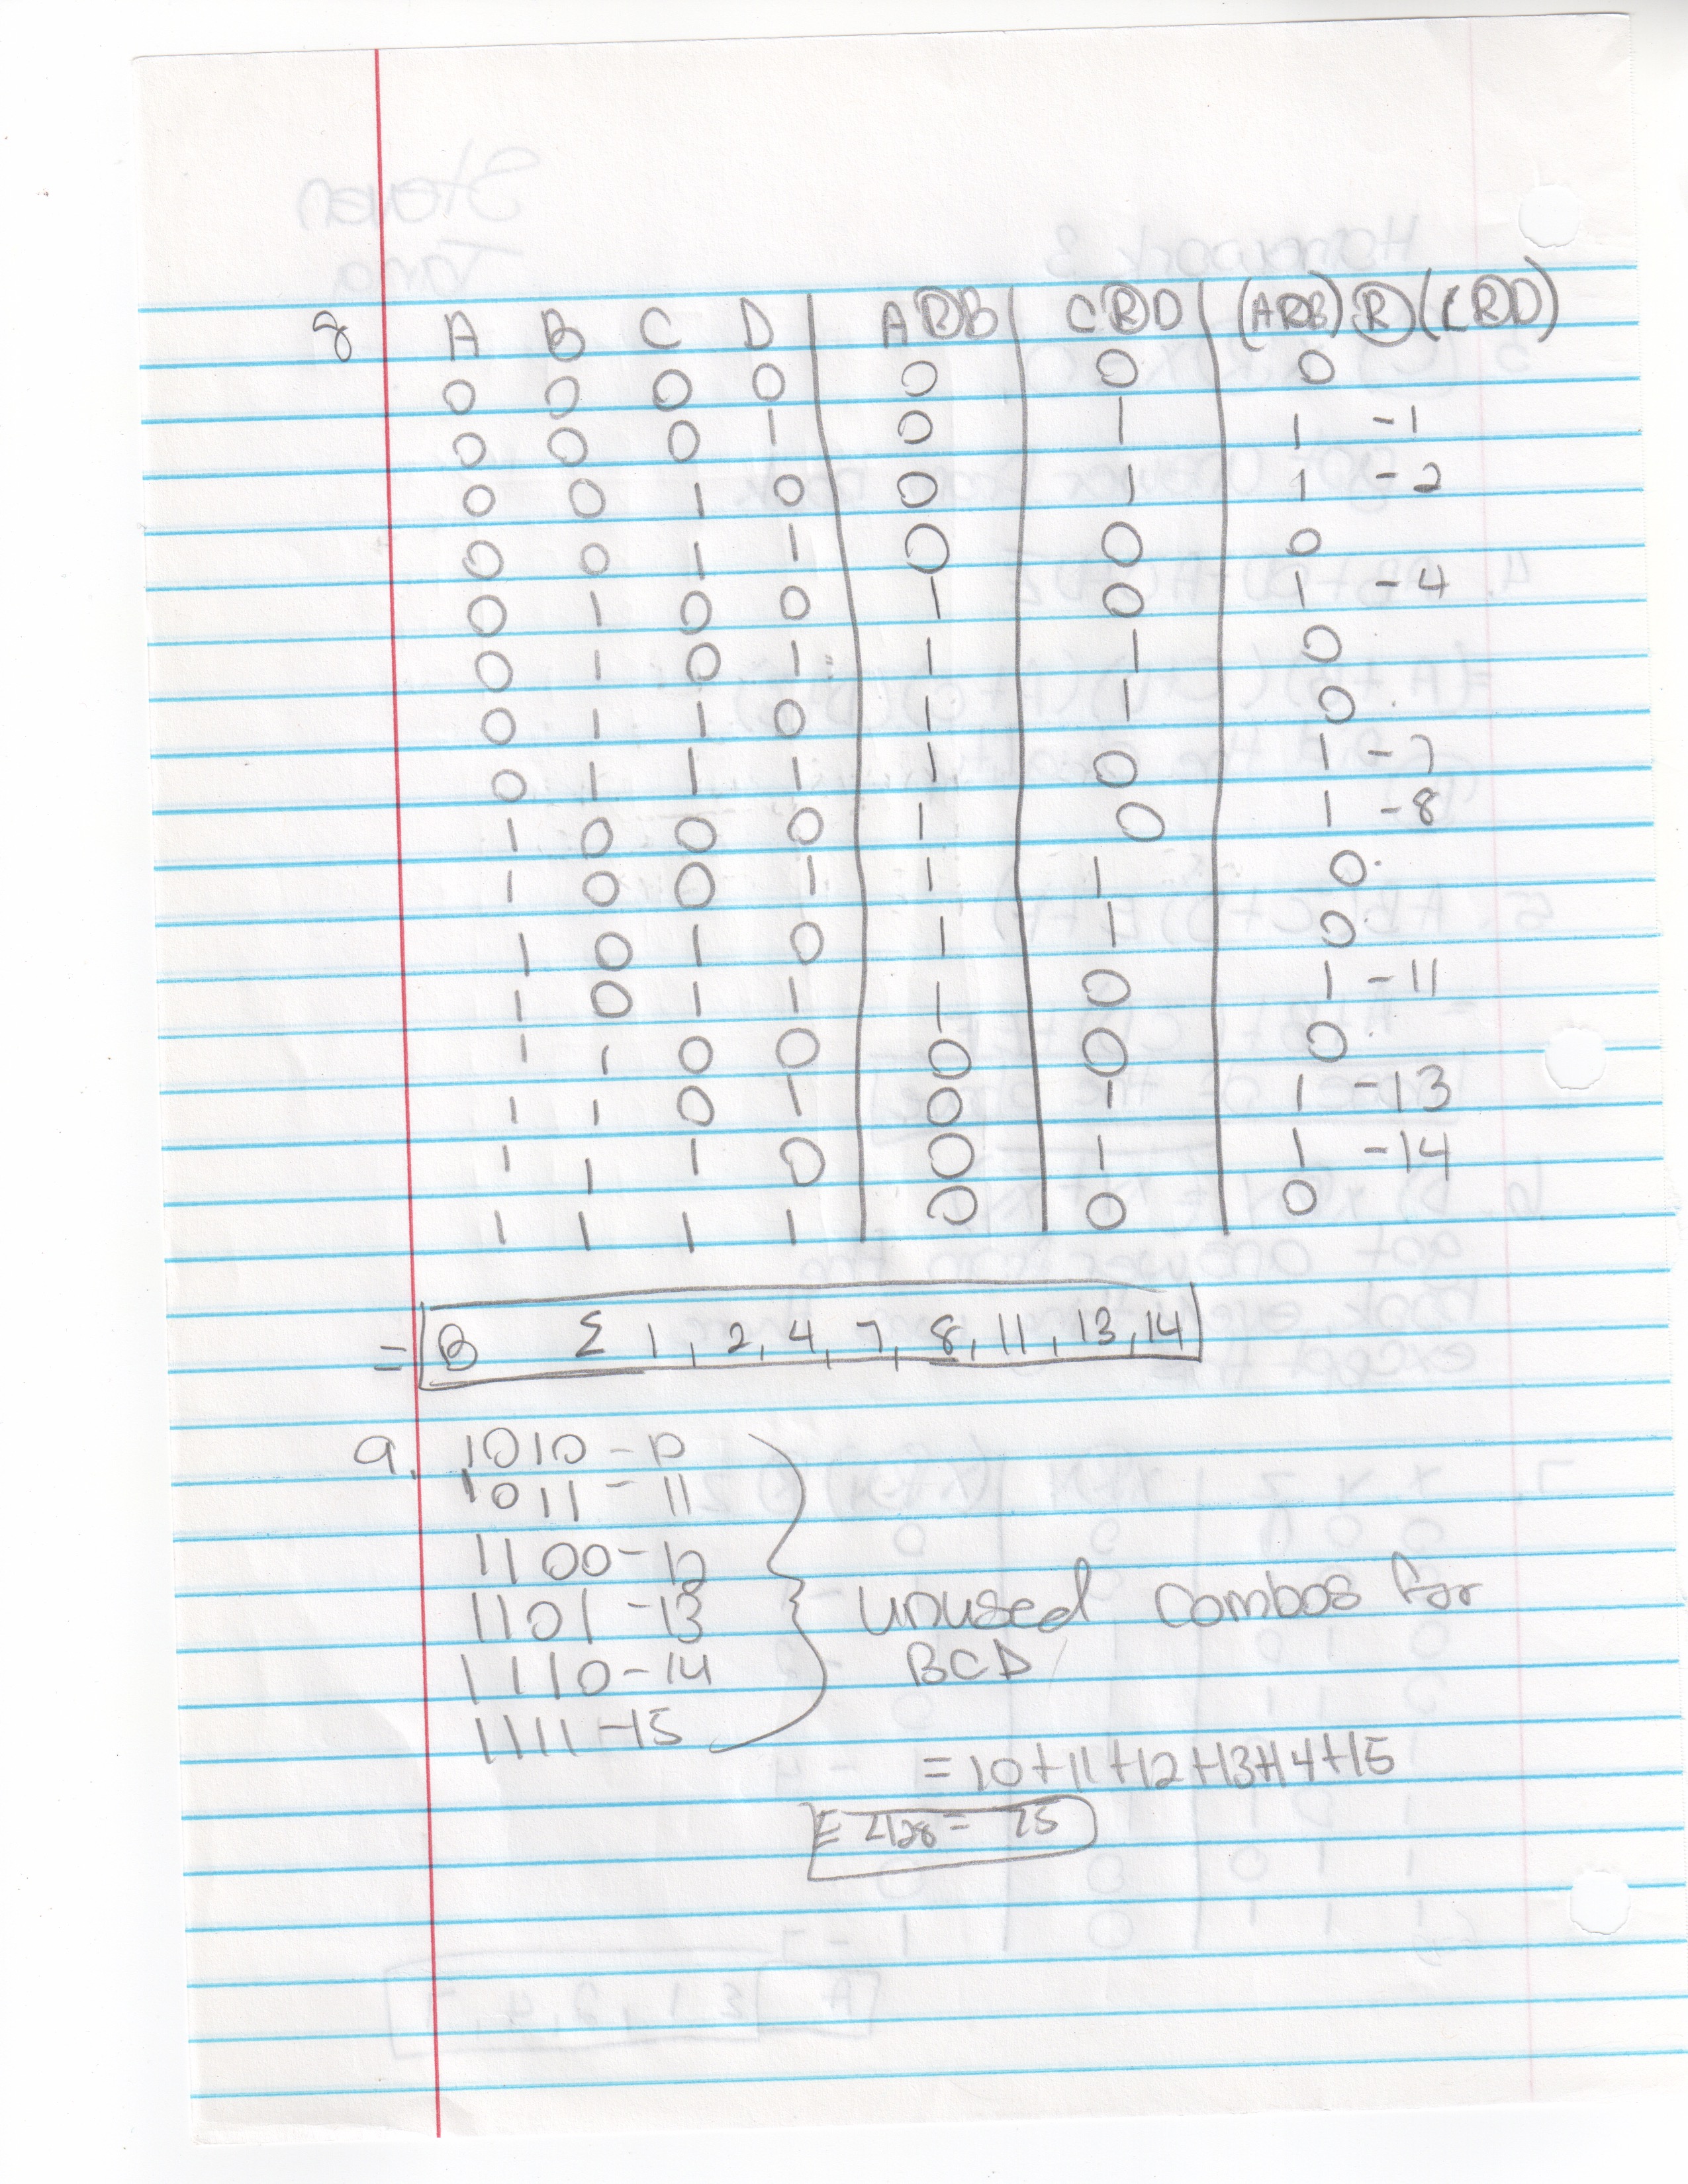 8 A B C D AⓇB CⓇD (AⓇB)Ⓡ(CⓇD)
0 0 0 0 0 0 0
0 0 0 1 0 1 1 -1
0 0 1 0 0 1 1 -2
0 0 1 1 0 0 0
0 1 0 0 1 0 1 -4
0 1 0 1 1 1 0
0 1 1 0 1 1 0
0 1 1 1 1 0 1 -7
1 0 0 0 1 0 1 -8
1 0 0 1 1 1 0
1 0 1 0 1 1 0
1 0 1 1 1 0 1 -11
1 1 0 0 0 0 0
1 1 0 1 0 1 1 -13
1 1 1 0 0 1 1 -14
1 1 1 1 0 0 0
= B Σ 1, 2, 4, 7, 8, 11, 13, 14
9. 1010 - 10
1011 - 11
1100 - 12
1101 - 13
1110 - 14
1111 - 15
unused combos for
BCD
= 10+11+12+13+14+15
= 75